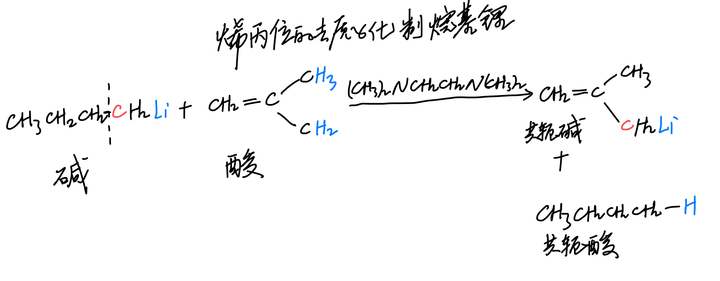 烯丙位的去质子化制烷基锂
CH3CH2CH2CH2Li + CH2=C CH3 CH2 (CH3)2NCH2CH2N(CH3)2 CH2=C CH3 CH2Li
碱 酸 共轭碱
+
CH3CH2CH2CH2-H
共轭酸